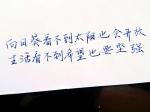 向日葵看不到太阳也会开放
生活看不到希望也要坚强